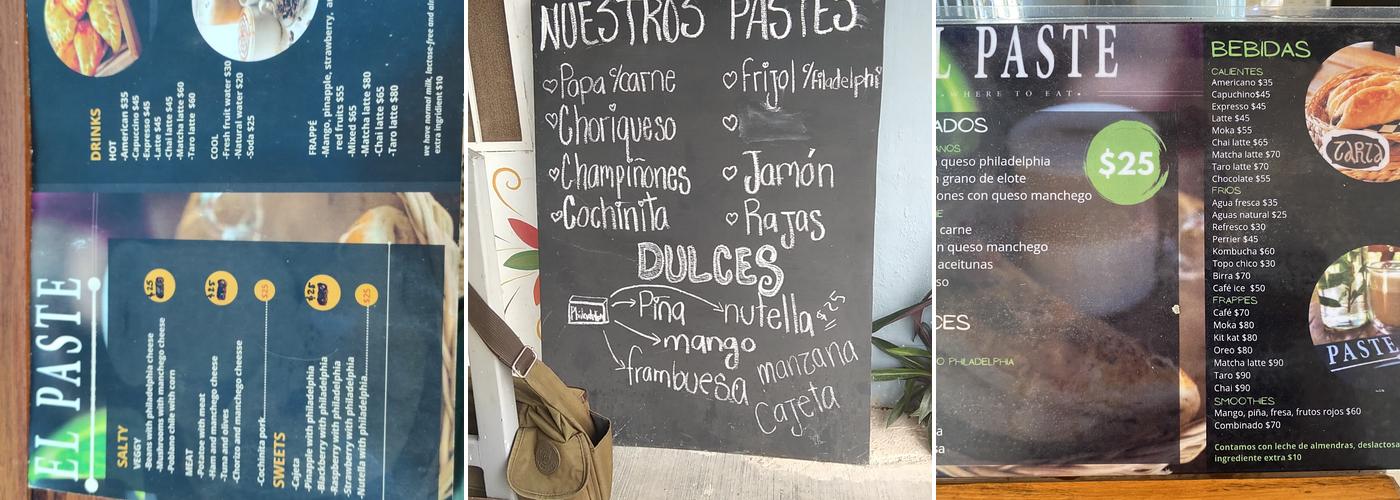 EL PASTE
SALTY
VEGGY
-Beans with philadelphia cheese
-Mushrooms with manchego cheese
-Poblano chile with corn
$25
MEAT
-Potatoe with meat
-Ham and manchego cheese
-Tuna and olives
-Chorizo and manchego cheesse
$25
-Cochinita pork $25
SWEETS
-Cajeta
-Pinapple with philadelphia
-Blackberry with philadelphia
-Raspberry with philadelphia
-Strawberry with philadelphia
$25
-Nutella with philadelphia $25
DRINKS
HOT
-American $35
-Capuccino $45
-Expresso $45
-Latte $45
-Chai latte $45
-Matcha latte $60
-Taro latte $60
COOL
-Fresh fruit water $30
-Natural water $20
-Soda $25
FRAPPÉ
-Mango, pineapple, strawberry,
red fruits $55
-Mixed $65
-Matcha latte $80
-Chai latte $65
-Taro latte $80
we have normal milk, lactose-free and
extra ingridient $10
NUESTROS PASTES
Papa c/carne
Choriqueso
Champiñones
Cochinita
Frijol c/filadelphi
Jamón
Rajas
DULCES
Philadelphia
Piña
nutella $25
mango
frambuesa
manzana
Cajeta
L PASTE
WHERE TO EAT
ADOS
ANOS
queso philadelphia
grano de elote
ones con queso manchego
$25
carne
n queso manchego
aceitunas
so
CES
O PHILADELPHIA
a
sa
BEBIDAS
CALIENTES
Americano $35
Capuchino$45
Expresso $45
Latte $45
Moka $55
Chai latte $65
Matcha latte $70
Taro latte $70
Chocolate $55
FRIOS
Agua fresca $35
Aguas natural $25
Refresco $30
Perrier $45
Kombucha $60
Topo chico $30
Birra $70
Café ice $50
FRAPPES
Café $70
Moka $80
Kit kat $80
Oreo $80
Matcha latte $90
Taro $90
Chai $90
SMOOTHIES
Mango, piña, fresa, frutos rojos $60
Combinado $70
Contamos con leche de almendras, deslactosa
ingrediente extra $10
TARTA
PASTE